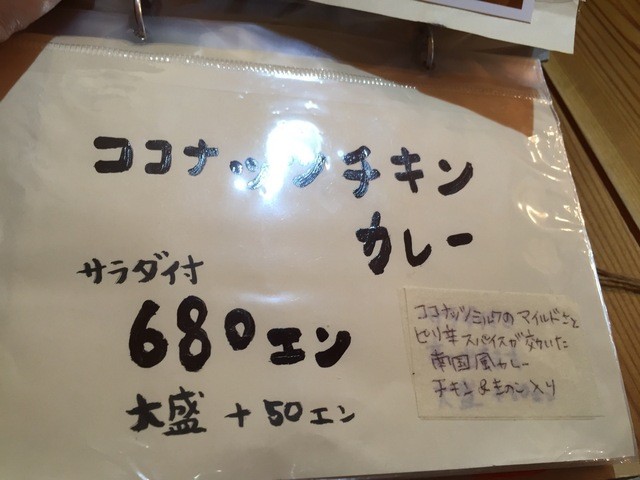 ココナッツチキン
カレー
サラダ付
680エン
大盛 +50エン
ココナッツミルクのマイルドさと
ピリ辛スパイスが効いた
南国風カレー
チキン&きのこ入り